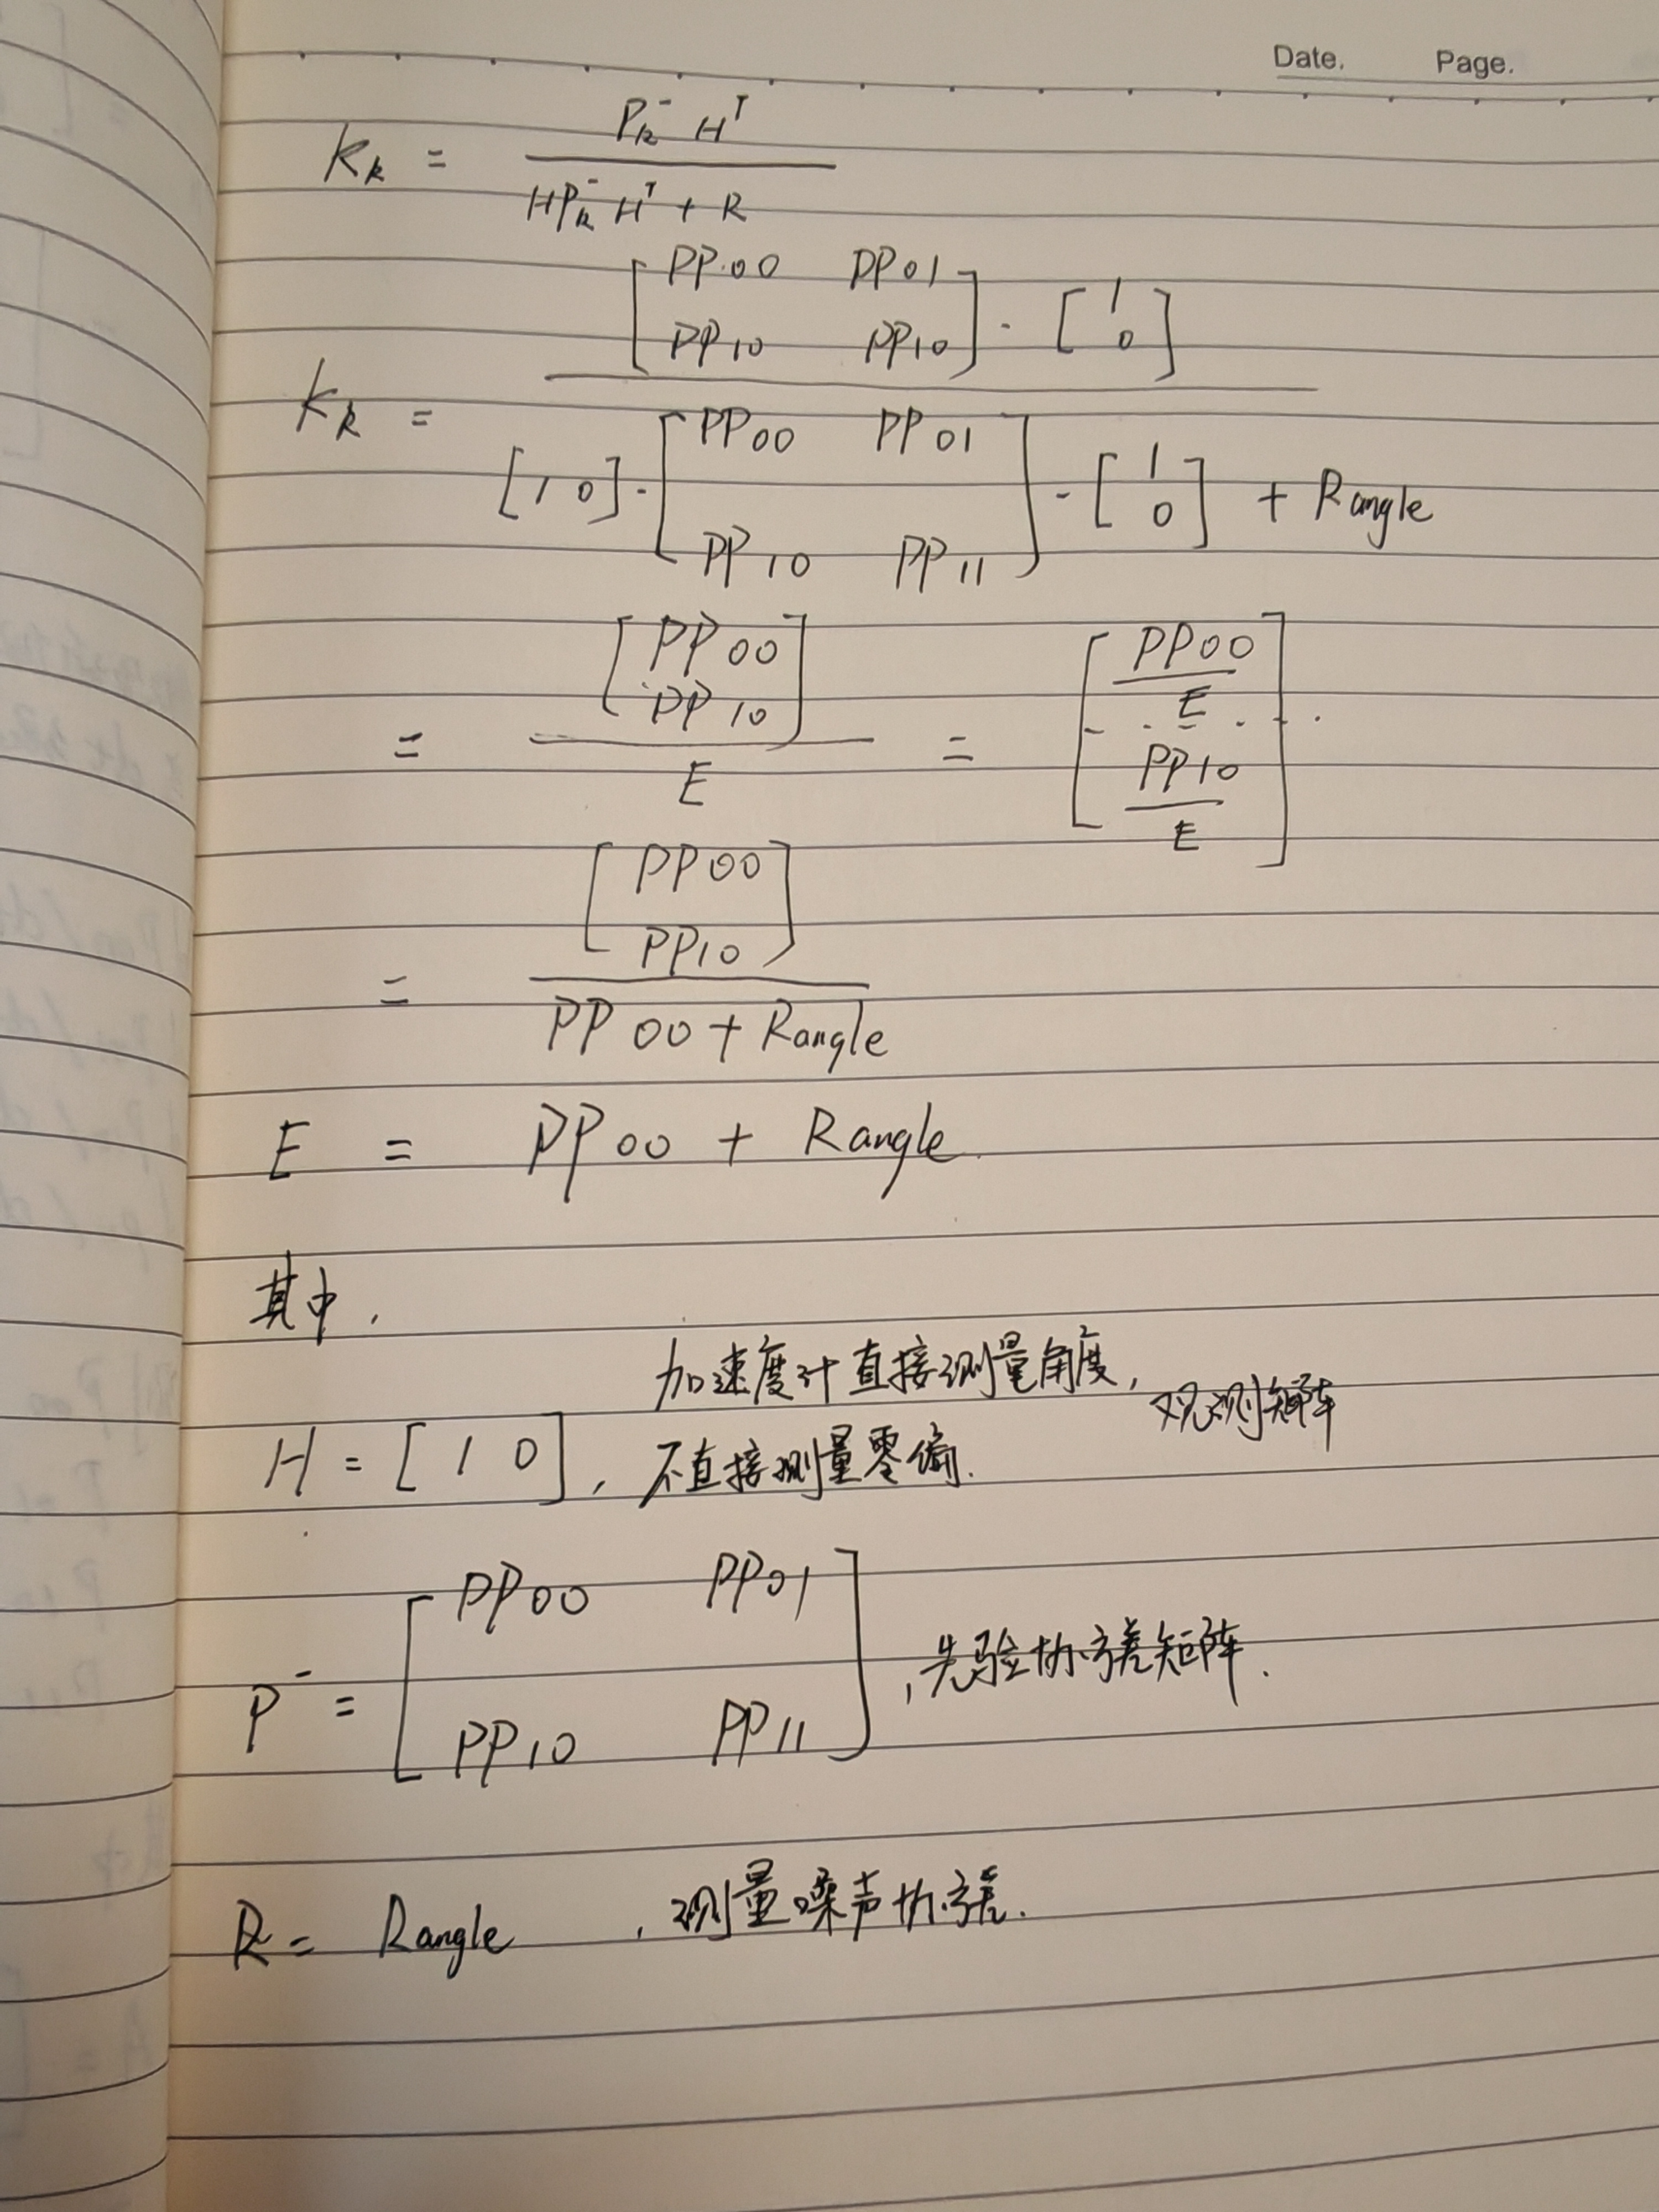 Date. Page.
K_k = \frac{P_k^- H^T}{H P_k^- H^T + R}
K_k = \frac{\begin{bmatrix} PP00 & PP01 \\ PP10 & PP10 \end{bmatrix} \cdot \begin{bmatrix} 1 \\ 0 \end{bmatrix}}{[1 \ 0] \cdot \begin{bmatrix} PP00 & PP01 \\ PP10 & PP11 \end{bmatrix} \cdot \begin{bmatrix} 1 \\ 0 \end{bmatrix} + Rangle}
= \frac{\begin{bmatrix} PP00 \\ PP10 \end{bmatrix}}{E} = \begin{bmatrix} \frac{PP00}{E} \\ \frac{PP10}{E} \end{bmatrix}
= \frac{\begin{bmatrix} PP00 \\ PP10 \end{bmatrix}}{PP00 + Rangle}
E = PP00 + Rangle
其中,
加速度计直接测量角度,
H = [1 0], 不直接测量零偏. 观测矩阵
P^- = \begin{bmatrix} PP00 & PP01 \\ PP10 & PP11 \end{bmatrix}, 先验协方差矩阵.
R = Rangle , 测量噪声协方差.